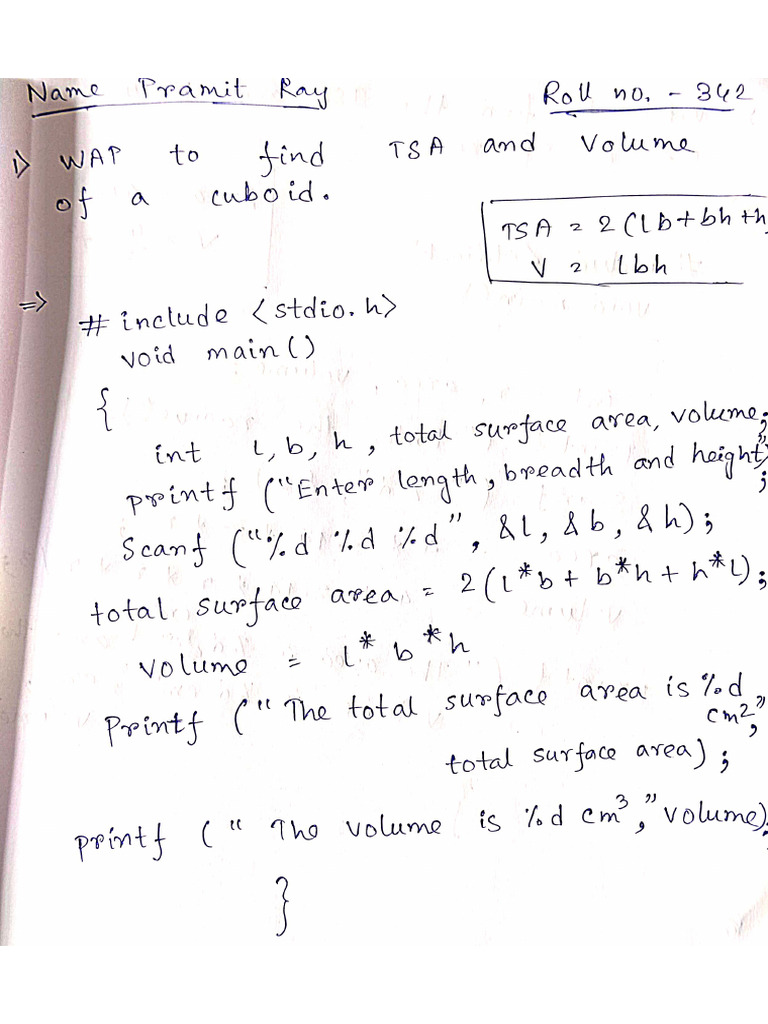 Name Pramit Ray Roll no. - 342
1) WAP to find TSA and Volume
of a cuboid.
TSA = 2(lb+bh+h
V = lbh
=> # include <stdio.h>
void main()
{
int l, b, h, total surface area, volume;
printf ("Enter length, breadth and height");
Scanf ("%d %d %d", &l, &b, &h);
total surface area = 2(l*b + b*h + h*l);
volume = l* b*h
Printf ("The total surface area is %d
cm2",
total surface area);
printf (" The volume is %d cm³," volume);
}